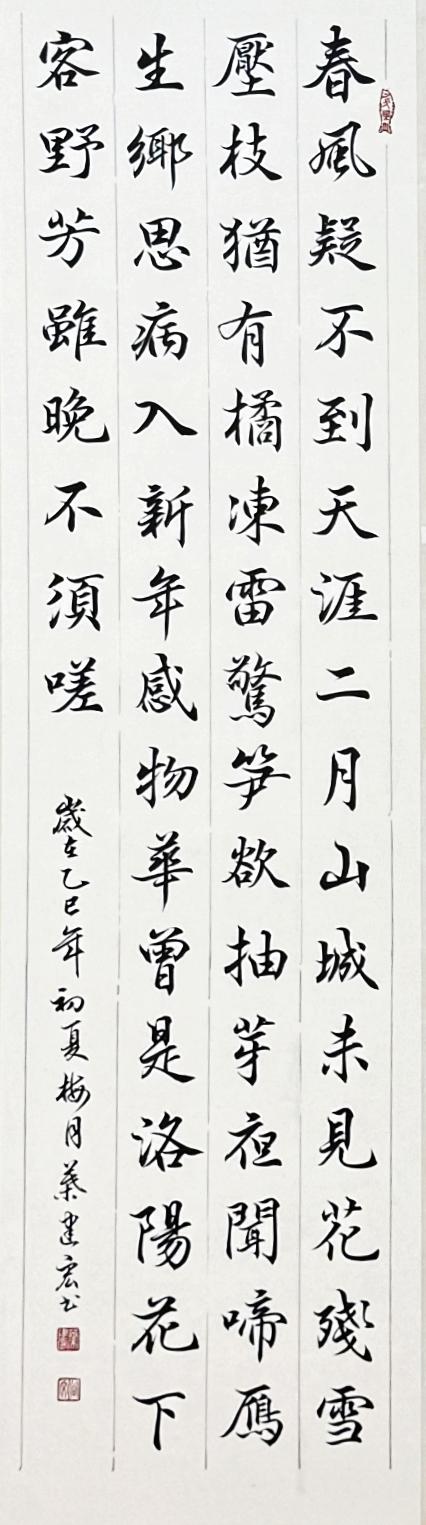 春風疑不到天涯二月山城未見花殘雪
壓枝猶有橘凍雷驚笋欲抽芽夜聞啼鴈
生鄉思病入新年感物華曾是洛陽花下
客野芳雖晚不須嗟
歲在乙巳年初夏梅月葉建宏书